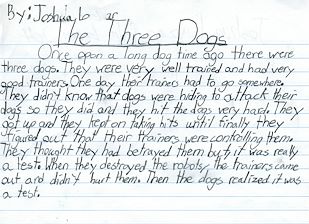 By: Joshua
The Three Dogs
Once apon a long dog time ago there were
three dogs. They were very well trained and had very
good trainers. One day their trainers had to go somewhere.
They didn't know that dogs were hiding to attack their
dogs so they did and they hit the dogs very hard. They
got up and they kept on taking hits until finally they
figured out that their trainers were controlling them.
They thought they had betrayed them but it was really
a test. When they destroyed the robots, the trainers came
out and didn't hurt them. Then the dogs realized it was
a test.